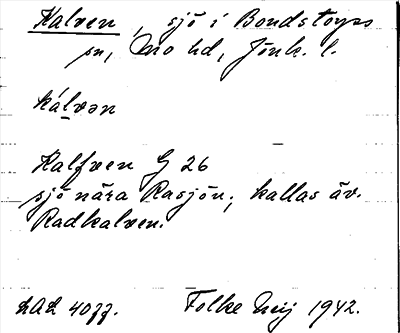 Kalven, sjö i Bondstorps
sn, Mo hd, Jönk. l.
kálvən
Kalfven G 26
sjö nära Rasjön; kallas äv.
Radkalven.
ULA 4077. Folke Neij 1942.